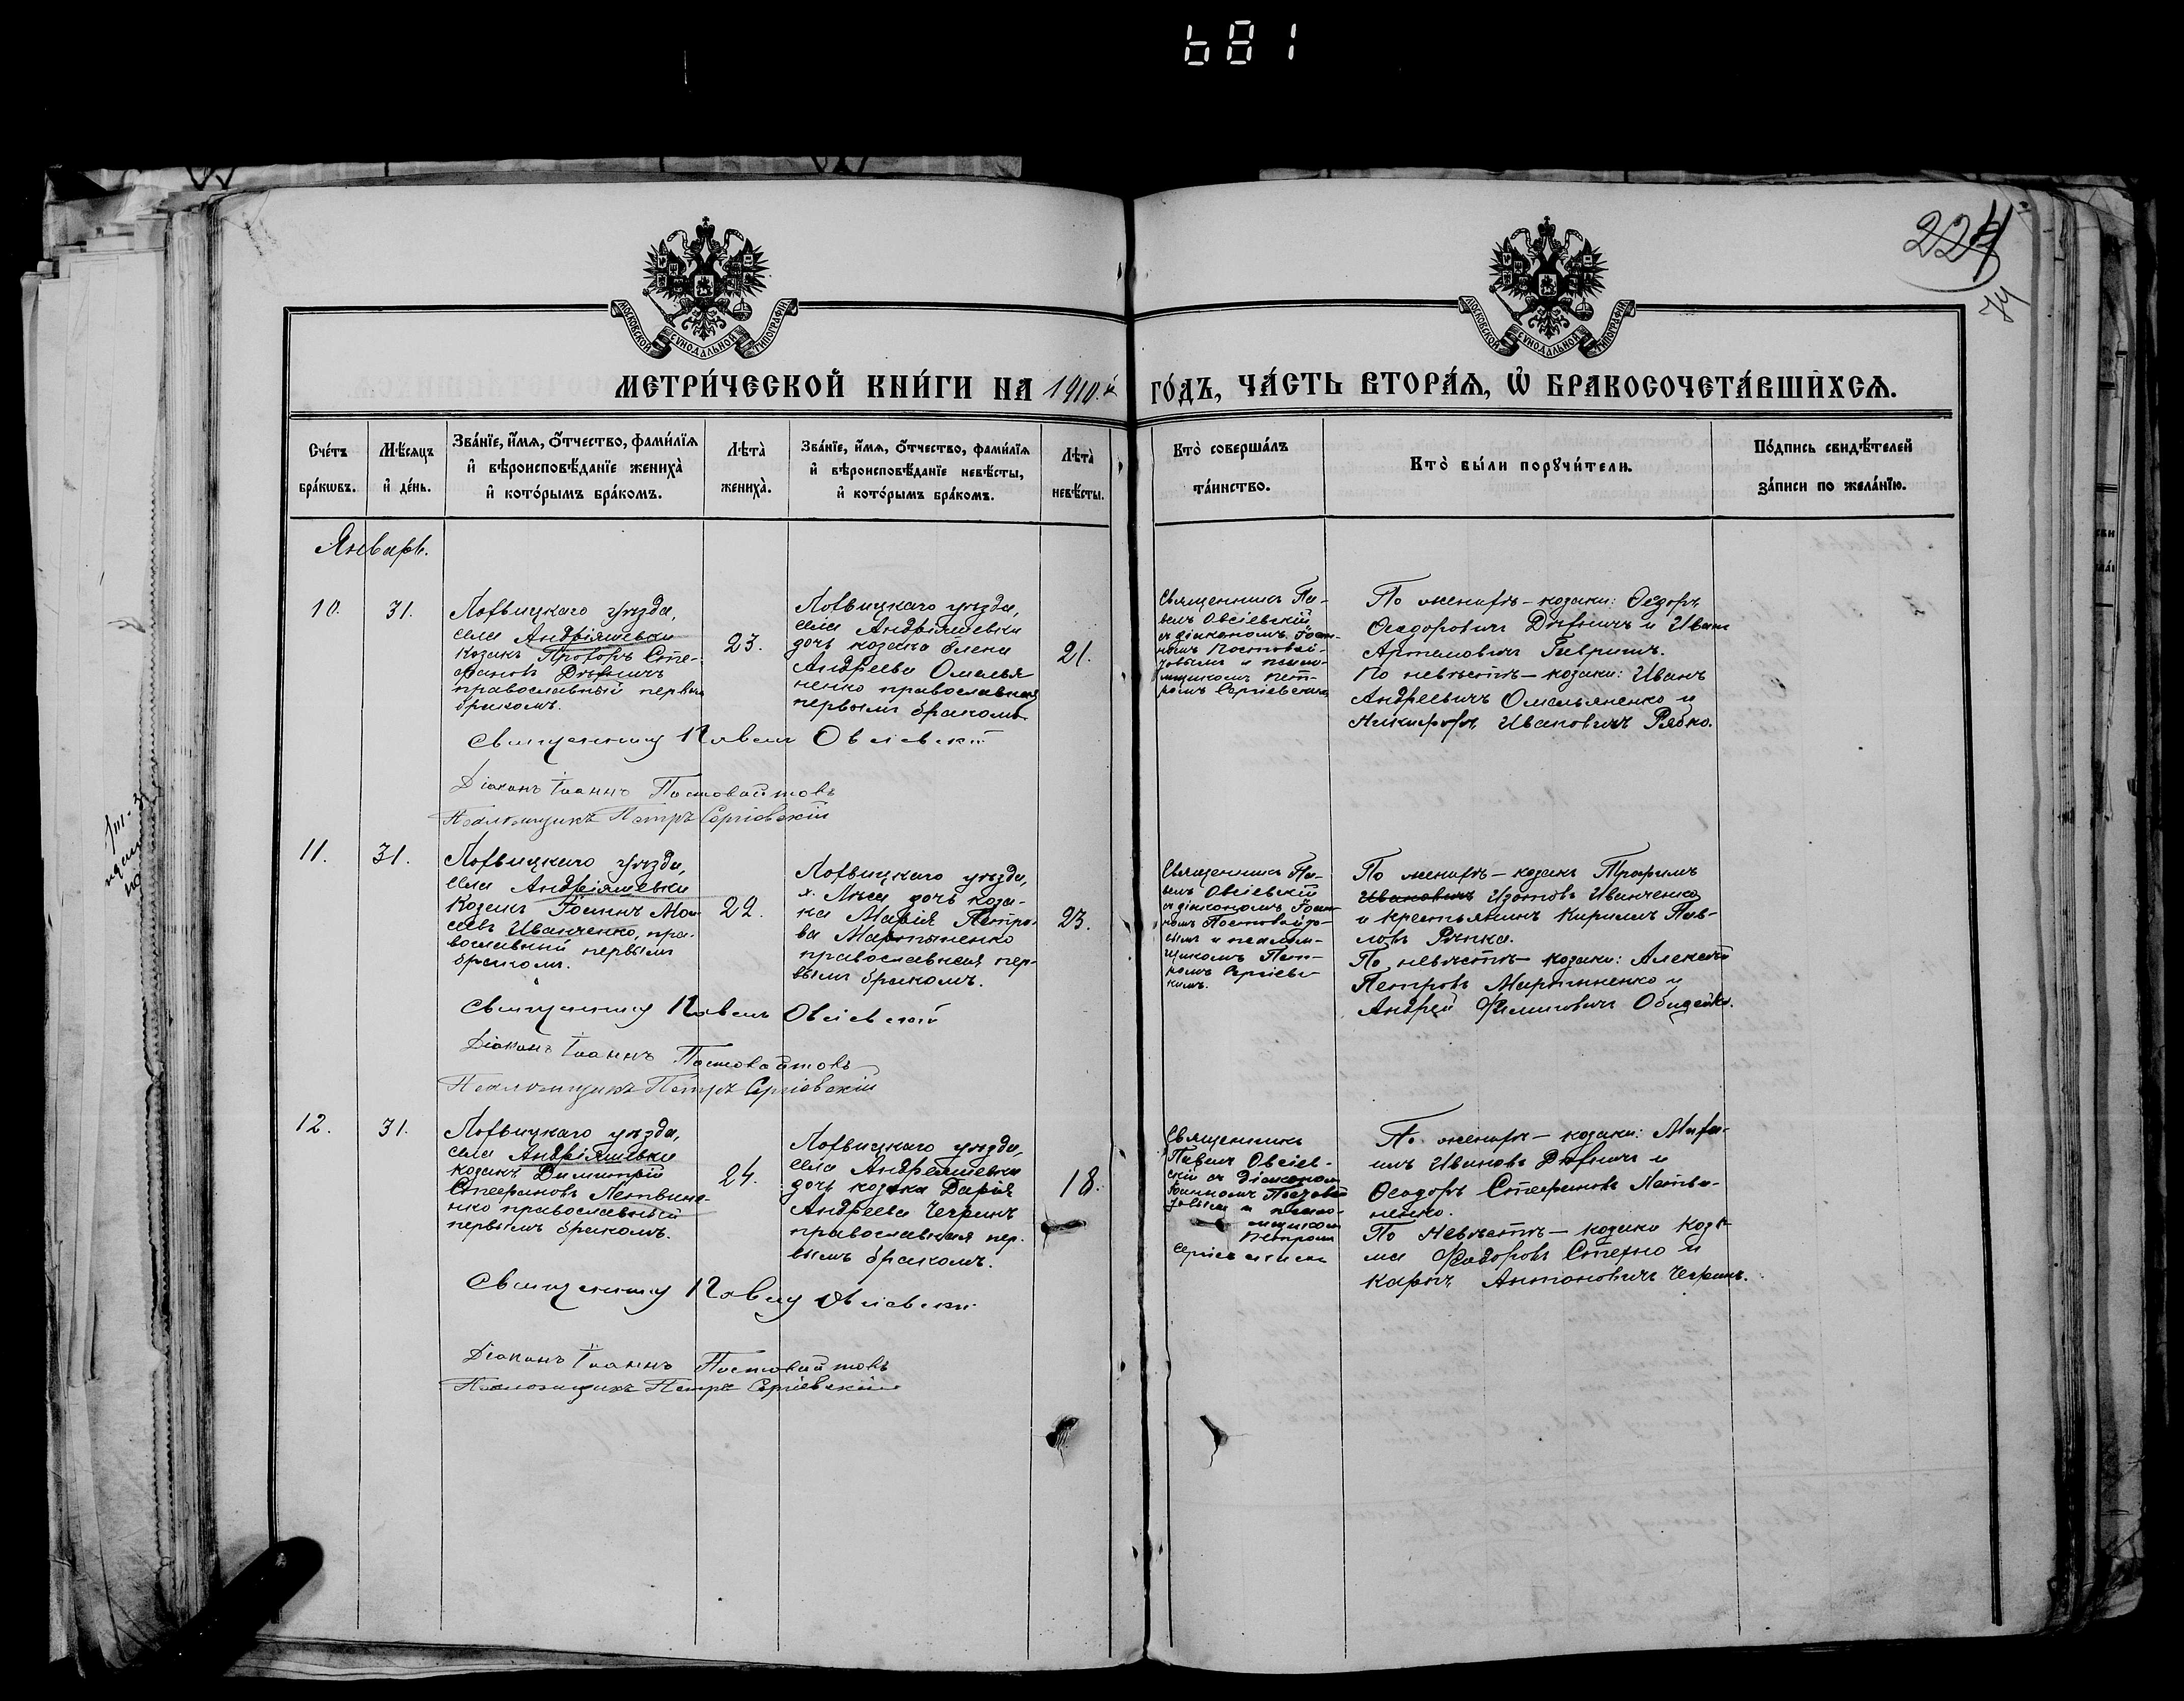 681
224
74
МОСКОВСКОЙ СѴНОДАЛЬНОЙ ТИПОГРАФІИ
МОСКОВСКОЙ СѴНОДАЛЬНОЙ ТИПОГРАФІИ
МЕТРИ́ЧЕСКОЙ КНИ́ГИ НА 1910 й ГО́ДЪ, ЧА́СТЬ ВТОРА́Ѧ, Ѽ БРАКОСОЧЕТА́ВШИХСѦ.
Сче́тъ бра́кѡвъ.
Мѣ́сѧцъ и де́нь.
Зва́нїе, и́мѧ, ѻ́тчество, фами́лїѧ и вѣроисповѣ́данїе жениха̀ и кото́рымъ бра́комъ.
Лѣта̀ жениха̀.
Зва́нїе, и́мѧ, ѻ́тчество, фами́лїѧ и вѣроисповѣ́данїе невѣ́сты, и кото́рымъ бра́комъ.
Лѣта̀ невѣ́сты.
Кто̀ соверша́лъ та́инство.
Кто̀ бы́ли порꙋчи́тели.
По́дпись свидѣ́телей за́писи по жела́нїю.
Январь.
10.
31.
Лохвицкаго уѣзда,
села Андріяшевки
козакъ Прохоръ Сте-
фановъ Дѣхтичъ
православный первымъ
бракомъ.
23.
Лохвицкаго уѣзда,
села Андріяшевки
дочь козака Елена
Андреева Омелья
ненко православная
первымъ бракомъ
21.
Священникъ Па-
велъ Овсіевскій
съ діакономъ Іоан-
номъ Постовой-
товымъ и псало-
мщикомъ Пет-
ромъ Сергіевскимъ
По женихѣ — козаки: Ѳедоръ
Ѳеодоровичъ и Иванъ
Артемовичъ Гавришъ.
По невѣстѣ — козаки: Иванъ
Андреевичъ Омельяненко и
Никифоръ Ивановичъ Рябко.
Священникъ Павелъ Овсіевскій
Діаконъ Іоаннъ Постовойтовъ
Псаломщикъ Петръ Сергіевскій
11.
31.
Лохвицкаго уѣзда,
села Андріяшевки
козакъ Іоаннъ Мои
сеевъ Иванченко, пра-
вославный первымъ
бракомъ.
22.
Лохвицкаго уѣзда,
х. Лиса дочь коза-
ка Марія Петро-
ва Мартыненко
православная пер-
вымъ бракомъ.
23.
Священникъ Па-
велъ Овсіевскій
съ діакономъ Іоан-
номъ Постовойто-
вымъ и псалом-
щикомъ Пет-
ромъ Сергіевс-
кимъ.
По женихѣ — козакъ Трофимъ
Ивановичъ Изотовъ Иванченко
и крестьянинъ Кирилъ Пав-
ловъ Рѣпка.
По невѣстѣ — козаки: Алексѣй
Петровъ Мартыненко и
Андрей Филиповичъ
Священникъ Павелъ Овсіевскій
Діаконъ Іоаннъ Постовойтовъ
Псаломщикъ Петръ Сергіевскій
12.
31.
Лохвицкаго уѣзда,
села Андріяшевки
козакъ Димитрій
Стефановъ Летвине-
нко православный
первымъ бракомъ.
24.
Лохвицкаго уѣзда,
села Андреяшевки
дочь козака Дарія
Андреева
православная пер-
вымъ бракомъ.
18.
Священникъ
Павелъ Овсіев-
скій съ діакономъ
Іоанномъ
и псало-
мщикомъ
Петромъ
По женихѣ — козаки: Миха-
илъ Ивановъ и
Ѳеодоръ Стефановъ Летви-
ненко.
По невѣстѣ — козаки Козь-
ма Федоровъ и
Карпъ Антоновичъ
Священникъ Павелъ Овсіевскій
Діаконъ Іоаннъ Постовойтовъ
Псаломщикъ Петръ Сергіевскій